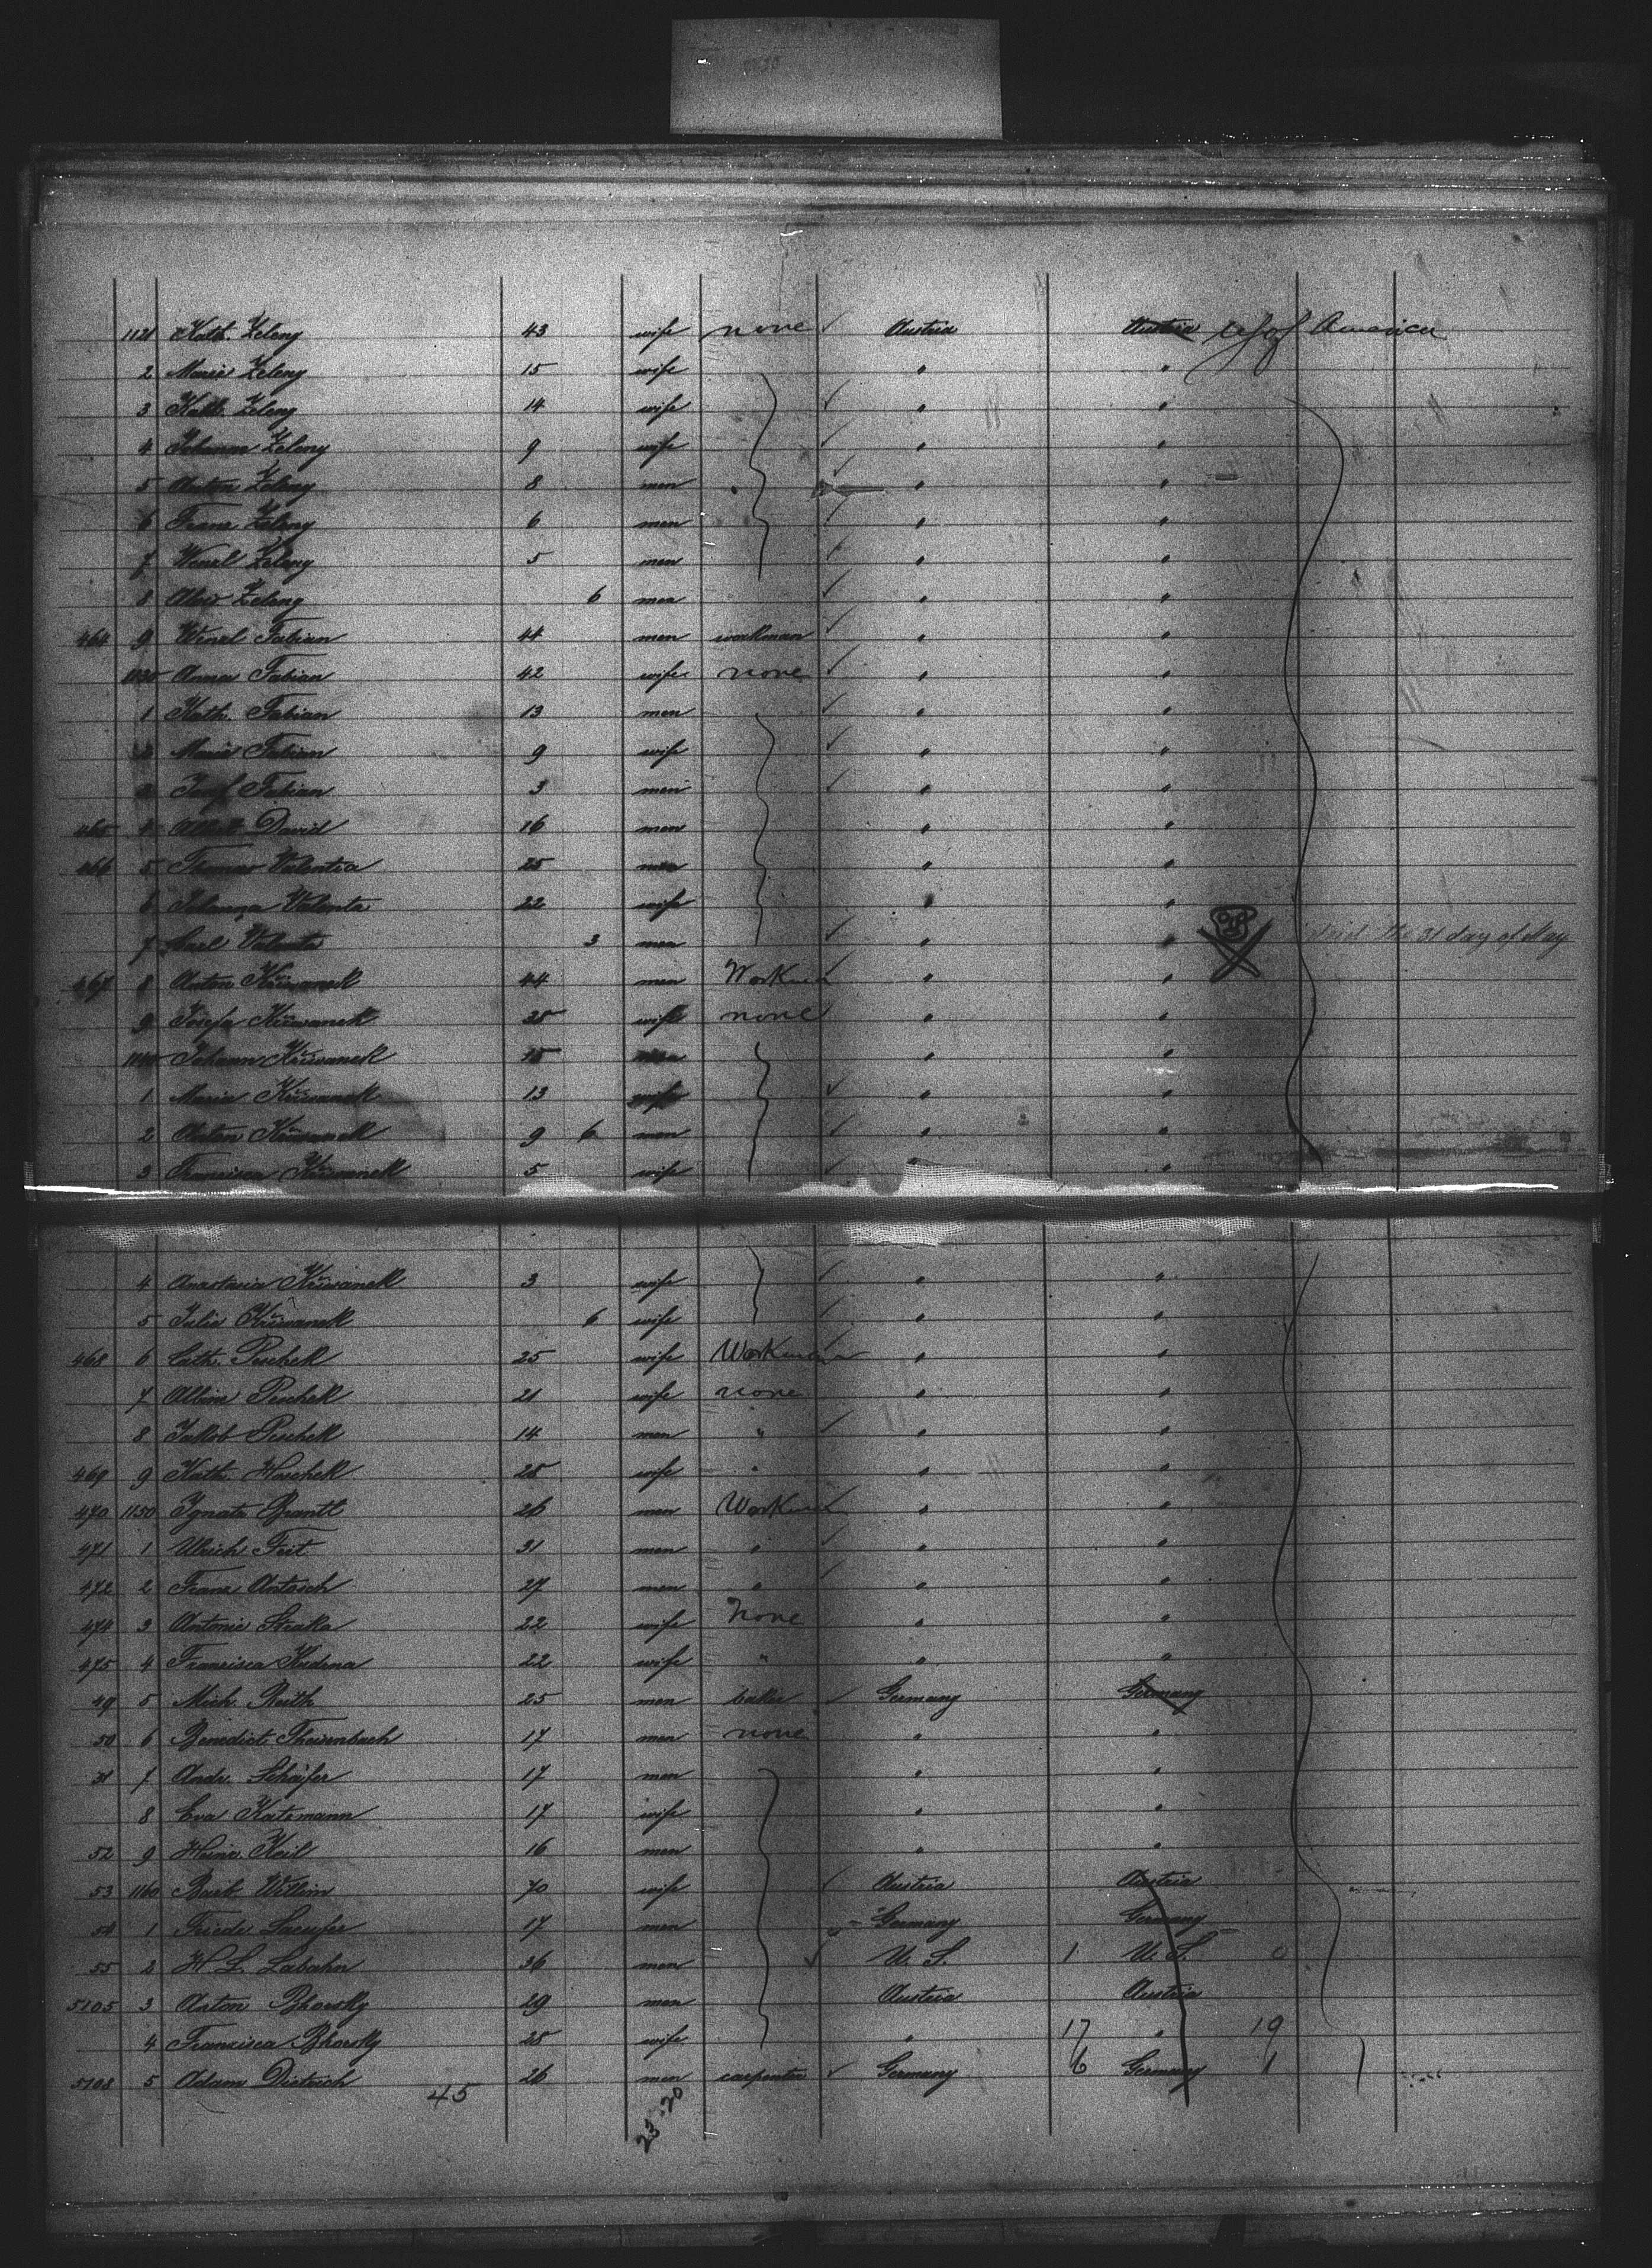 1121 Kath. Zeleny 43 wife none Austria Austria U. S. of America
2 Marie Zeleny 15 wife " "
3 Kath. Zeleny 14 wife " "
4 Johanna Zeleny 9 wife " "
5 Anton Zeleny 8 men " "
6 Franz Zeleny 6 men " "
7 Wenzl Zeleny 5 men " "
8 Zeleny 6 men " "
464 9 Wenzl Fabian 44 men workman " "
1130 Anna Fabian 42 wife none " "
1 Kath. Fabian 13 men " "
2 Marie Fabian 9 wife " "
3 Josef Fabian 3 men " "
465 4 David 16 men " "
466 5 Thomas Valenta 25 men " "
6 Johanna Valenta 22 wife " "
7 Carl Valenta 3 men " " died the 31 day of May
467 8 Anton Křiwanek 44 men Workman " "
9 Josefa Křiwanek 35 wife none " "
1140 Johann Křiwanek 15 men " "
1 Maria Křiwanek 13 wife " "
2 Anton Křiwanek 9 6 men " "
3 Francisca Křiwanek 5 wife " "
4 Anastasia Křiwanek 3 wife " "
5 Julie Křiwanek 6 wife " "
468 6 Cath. Peschek 25 wife Workman " "
7 Albine Peschek 21 wife none " "
8 Jakob Peschek 14 men " " "
469 9 Kath. Haschek 25 wife " " "
470 1150 Ignatz Brantl 26 men Workman " "
471 1 Ulrich Feit 31 men " " "
472 2 Franz Antosch 27 men " " "
474 3 Antonie Straka 22 wife None " "
475 4 Francisca Kudrna 22 wife " " "
49 5 Mich. Reith 25 men baker Germany Germany
50 6 Benedict Theisenbach 17 men none " "
51 7 Andr. Schäfer 17 men " "
8 Eva Katzmann 17 wife " "
52 9 Heinr. Keil 16 men " "
53 1160 Barb. Willim 70 wife Austria Austria
54 1 Friedr. 17 men Germany Germany
55 2 H. L. Labahn 36 men U. S. 1 U. S. 0
5105 3 Anton 29 men Austria Austria
4 Francisca 25 wife " 17 " 19
5108 5 Adam Dietrich 26 men carpenter Germany 6 Germany 1
45 23 20